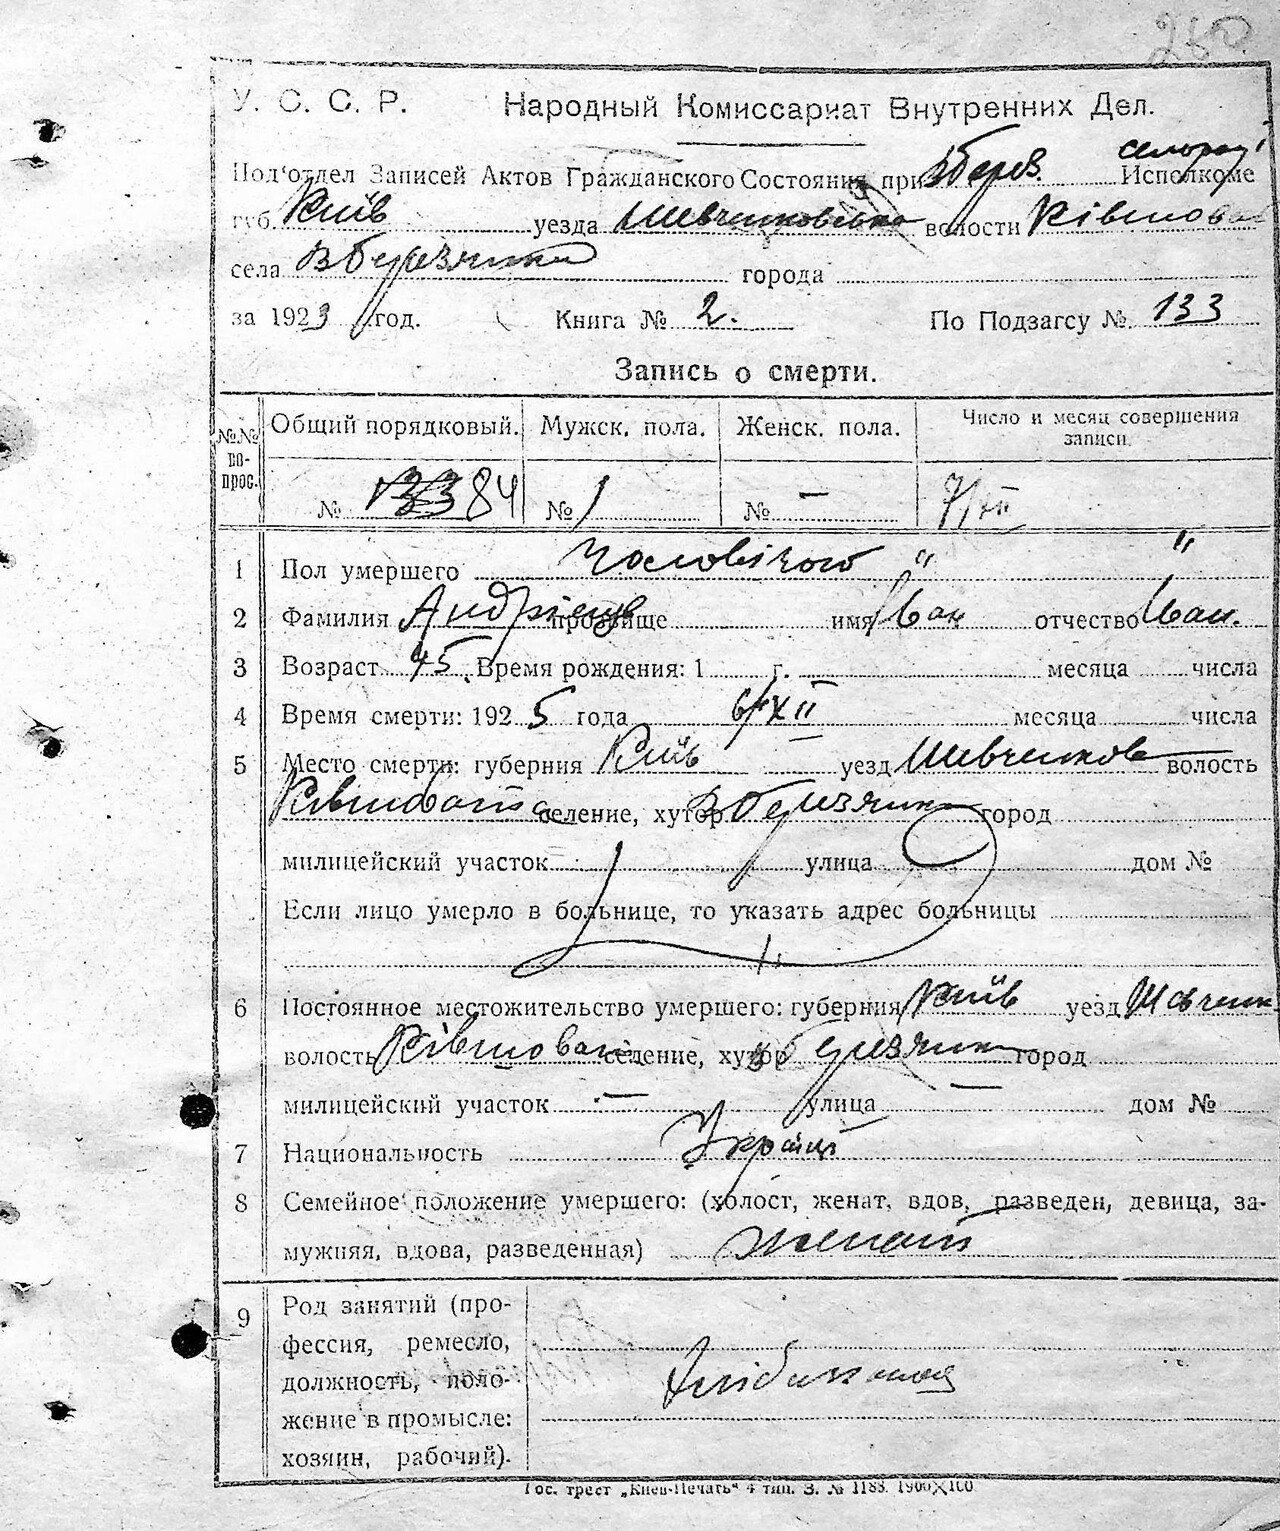 260
У. С. С. Р. Народный Комиссариат Внутренних Дел.
Под'отдел Записей Актов Гражданского Состояния при Вберез. сельрад Исполкоме
губ. Київ уезда Шевченковська волости Ківшова
села Вберезянка города
за 1923 год. Книга № 2. По Подзагсу № 133
Запись о смерти.
№№ во-прос. Общий порядковый. Мужск. пола. Женск. пола. Число и месяц совершения записи.
№ 133 84 № 1 № — 7/XII
1 Пол умершего Чоловічого " "
2 Фамилия Андрієць прозвище имя Іван отчество Іван.
3 Возраст 45 Время рождения: 1 г. месяца числа
4 Время смерти: 1925 года 6/XII месяца числа
5 Место смерти: губерния Київ уезд Шевченков волость
Ківшовата селение, хутор Вберезянка город
милицейский участок улица дом №
Если лицо умерло в больнице, то указать адрес больницы
6 Постоянное местожительство умершего: губерния Київ уезд Шевченк
волость Ківшоват селение, хутор Вберезянка город
милицейский участок — улица — дом №
7 Национальность Україн
8 Семейное положение умершего: (холост, женат, вдов, разведен, девица, за-
мужняя, вдова, разведенная) женат
9 Род занятий (про-
фессия, ремесло,
должность, поло-
жение в промысле:
хозяин, рабочий).
Гос. трест „Киев-Печать" 4 тип. З. № 1188. 1900X100